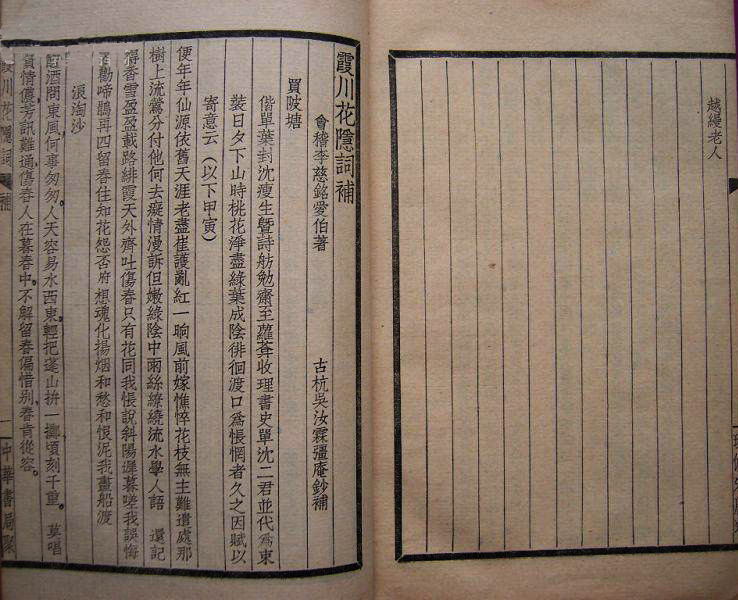 越縵老人
霞川花隱詞補
會稽李慈銘愛伯著　古杭吳汝霖彊庵鈔補
買陂塘
偕單葉封沈瘦生曁詩舫勉齋至蘿菴收理書史單沈二君並代為束
裝日夕下山時桃花淨盡綠葉成陰徘徊渡口為悵惘者久之因賦以
寄意云（以下甲寅）
便年年仙源依舊天涯老盡崔護亂紅一晌風前嫁憔悴花枝無主難遣處那
樹上流鶯分付他何去癡情漫訴但嫩綠陰中雨絲繚繞流水學人語　還記
得香雪盈盈載路緋霞天外齊吐傷春只有花同我悵說斜陽遲暮嗟我誤悔
勸啼鵑再四留春住知花怨否府想魂化揚烟和愁和恨泥我畫船渡
浪淘沙
酒問東風何事匆匆人天容易水西東輕把蓬山拚一擲頃刻千重　莫唱
情儂芳訊難通傷春人在暮春中不解留春偏惜別春肯從容
霞川花隱詞　補
一　中華書局聚